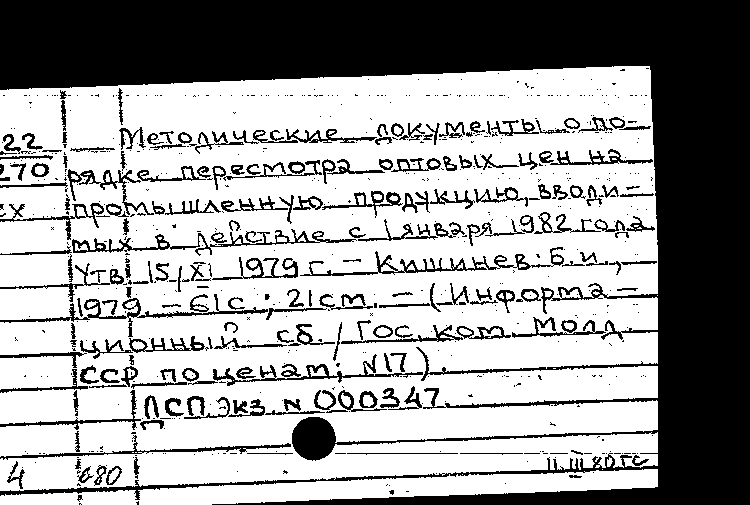 22
270
Методические документы о по-
рядке пересмотра оптовых цен на
промышленную продукцию, вводи-
мых в действие с 1 января 1982 года
Утв 15/XI 1979 г. – Кишинев: Б.и.,
1979. – 61 с.; 21 см. – (Информа-
ционный сб. / Гос. ком. Молд.
ССР по ценам; N17).
ДСП. Экз. N 000347.
4 680
11.III 80 ГС